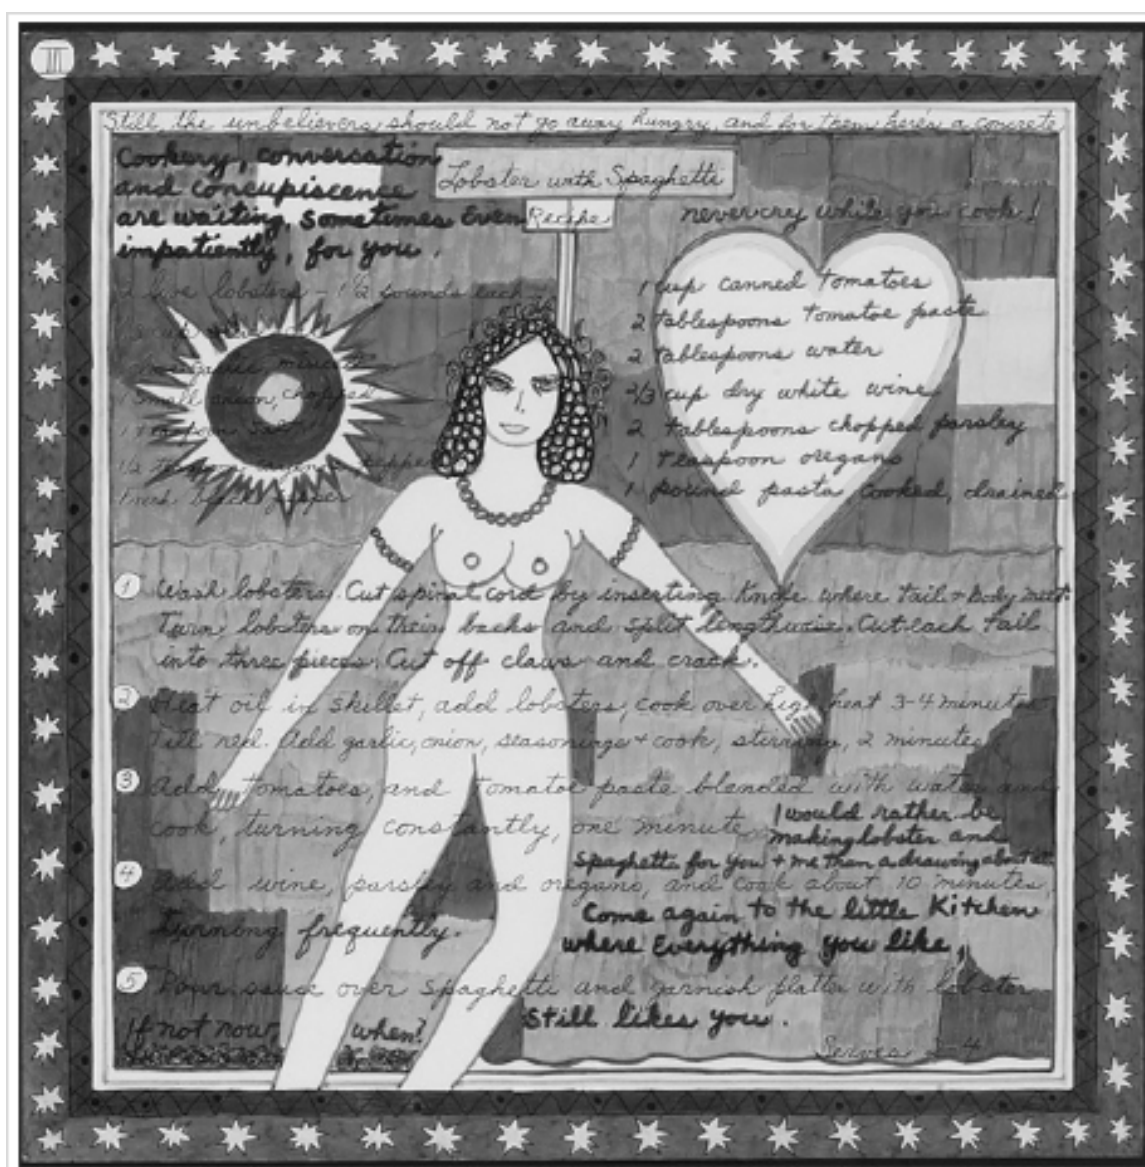 III
Still, the unbelievers should not go away hungry, and for them here's a concrete
Cookery, conversation
and concupiscence
are waiting, sometimes Even
impatiently, for you.
Lobster with Spaghetti
Recipe
never cry while you cook!
2 live lobsters - 1 1/2 pounds each
1 Small onion, chopped
1 teaspoon salt
Fresh black pepper
1 cup canned tomatoes
2 tablespoons tomatoe paste
2 tablespoons water
2/3 cup dry white wine
2 tablespoons chopped parsley
1 teaspoon oregano
1 pound pasta cooked, drained
1 Wash lobsters. Cut spinal cord by inserting Knife where Tail + Body meet.
Turn lobsters on their backs and split lengthwise. Cut each Tail
into three pieces. Cut off claws and crack.
2 Heat oil in skillet, add lobsters, cook over high heat 3-4 minutes
Till red. Add garlic, onion, seasonings + cook, stirring, 2 minutes
3 Add tomatoes, and tomatoe paste blended with water and
cook, turning constantly, one minute
I would rather be
making lobster and
spaghetti for you + me than a drawing about it.
4 Add wine, parsley and oregano, and cook about 10 minutes,
Turning frequently.
Come again to the little Kitchen
where Everything you like,
5 Pour sauce over spaghetti and garnish platter with lobster
Still likes you.
If not now, when?
Serves 2-4